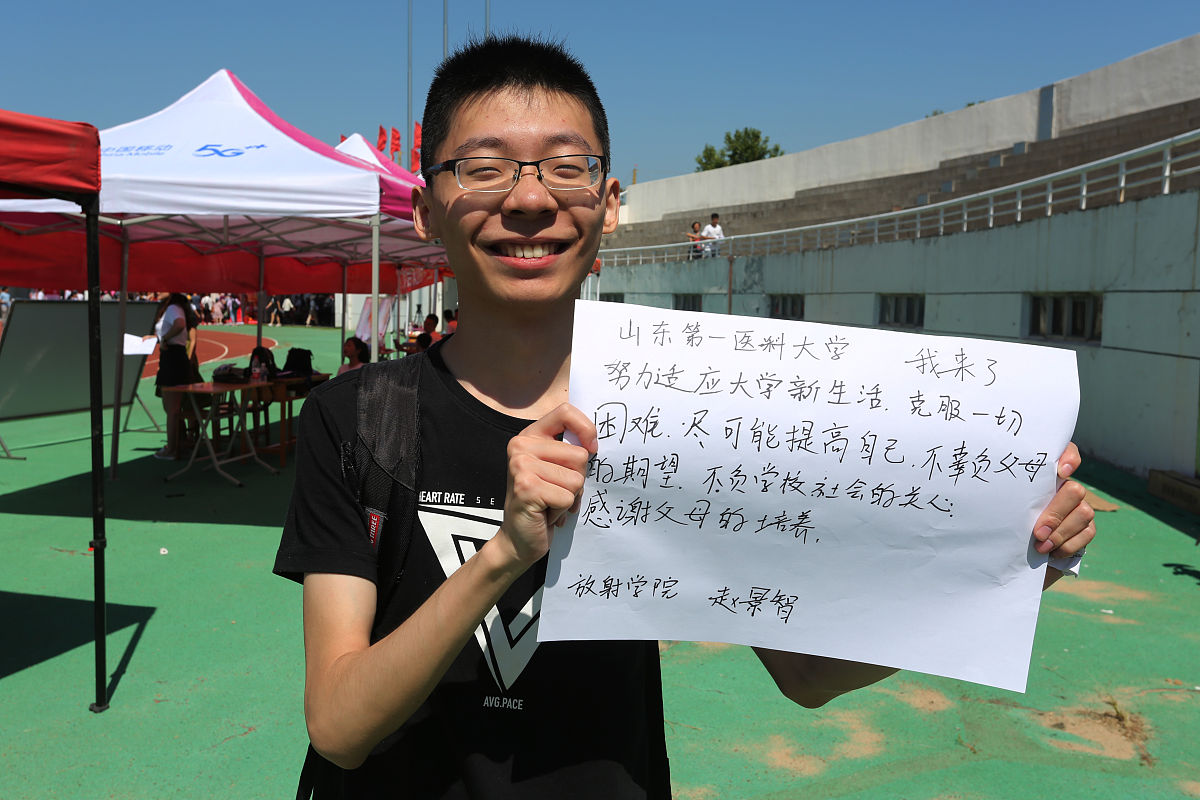 中国移动
China Mobile
5G++
山东第一医科大学 我来了
努力适应大学新生活.克服一切
困难.尽可能提高自己.不辜负父母
的期望.不负学校社会的关心.
感谢父母的培养.
放射学院 赵景智
HEART RATE
AVG.PACE